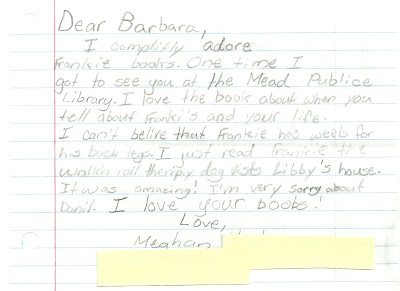 Dear Barbara,
I complitly adore
Frankie books. One time I
got to see you at the Mead Publice
Library. I love the book about when you
tell about Franki's and your life.
I can't belire that Frankie has weels for
his back legs. I just read Frankie the
walkn roll theripiy dog vists Libby's house.
It was amazing! I'm very sorry about
Danil. I love your boobs!
Love,
Meghan